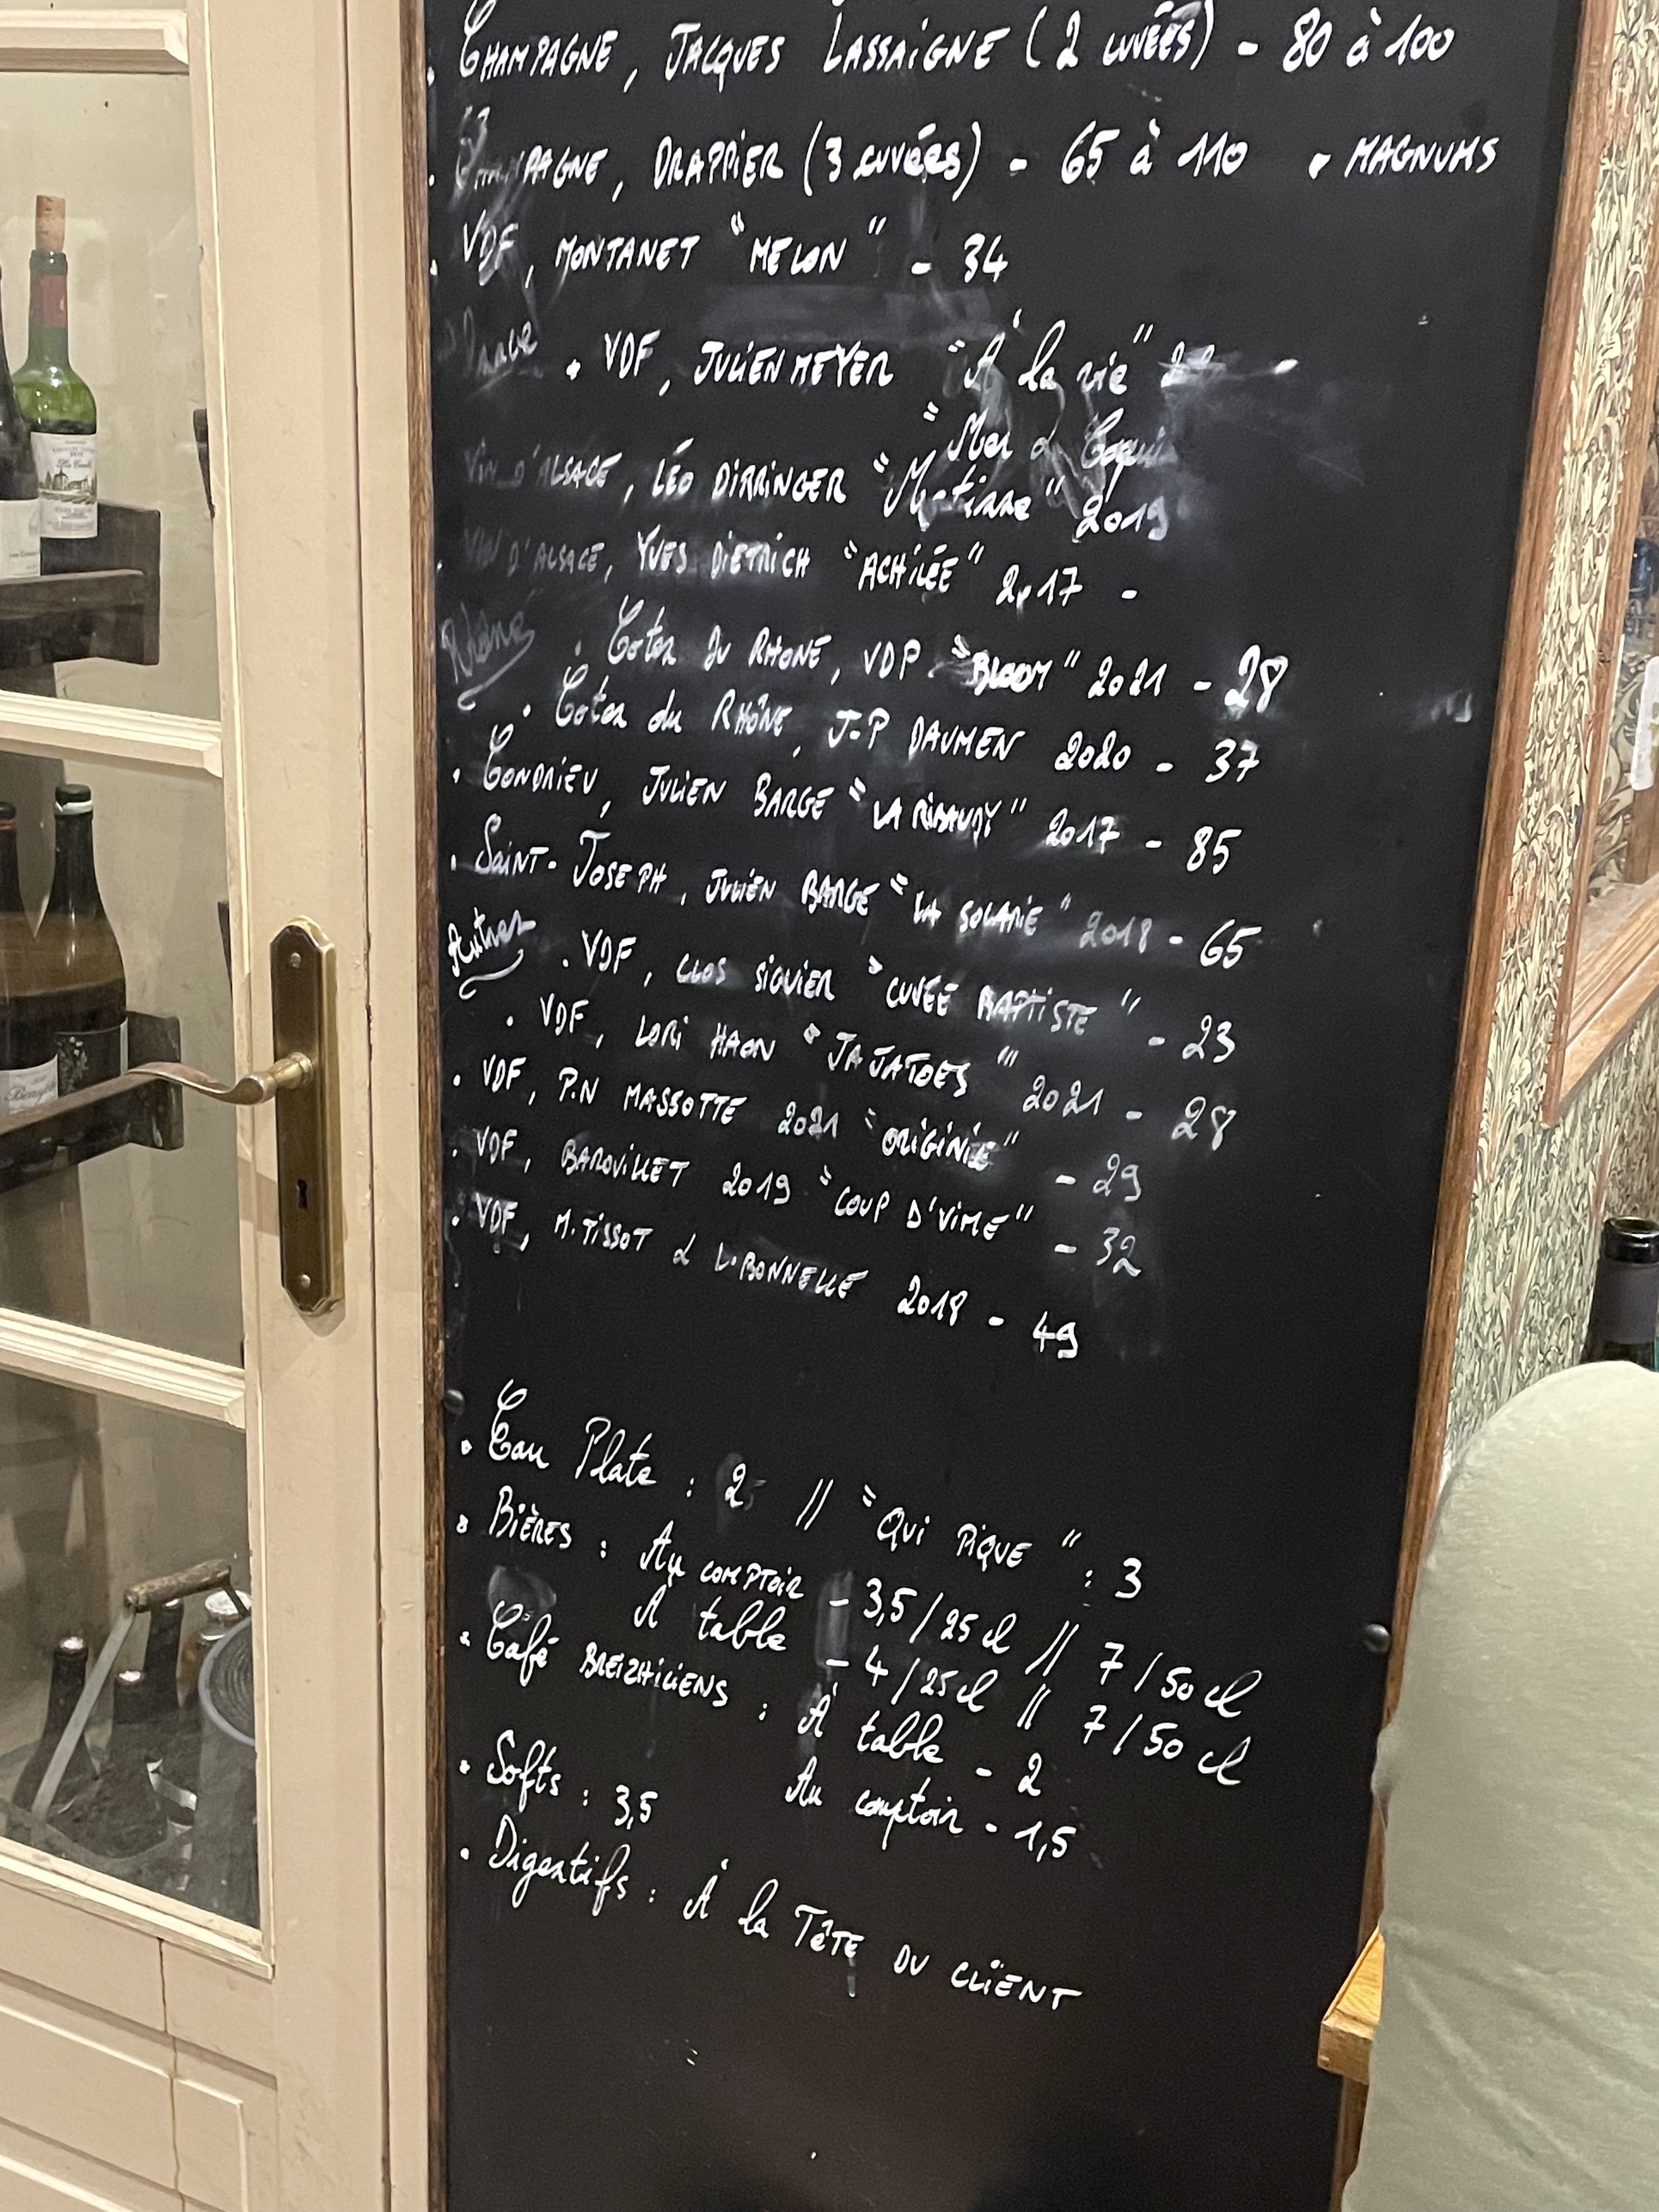 . CHAMPAGNE, JACQUES LASSAIGNE (2 CUVÉES) - 80 à 100
. CHAMPAGNE, DRAPPIER (3 CUVÉES) - 65 à 110 • MAGNUMS
. VDF, MONTANET "MELON" - 34
. VDF, JULIEN MEYER "À la vie"
"Mer &
VIN D'ALSACE, LÉO DIRRINGER 2019
. VIN D'ALSACE, YVES DIETRICH "ACHILÉE" 2017 -
Rhône
. Cotes du RHONE, VDP "BLOOM" 2021 - 28
. Cotes du RHÔNE, J-P DAUMEN 2020 - 37
. CONDRIEU, JULIEN BARGE "LA RIBAUDY" 2017 - 85
. SAINT-JOSEPH, JULIEN BARGE "LA SOLARIE" 2018 - 65
Autres
. VDF, CLOS SIGUIER "CUVÉE BAPTISTE" - 23
. VDF, LORI HAON "JAJATOES" 2021 - 28
. VDF, P.N MASSOTTE 2021 "ORIGINIE" - 29
. VDF, BAROUILLET 2019 "COUP D'VIME" - 32
. VDF, M.TISSOT & L.BONNELLE 2018 - 49
. Eau Plate : 2 // "QUI PIQUE" : 3
. BIÈRES : Au COMPTOIR - 3,5 / 25 cl // 7 / 50 cl
À table - 4 / 25 cl // 7 / 50 cl
. Café BREIZHILIENS : À table - 2
Au comptoir - 1,5
. Softs : 3,5
. Digestifs : À la TÊTE DU CLIENT